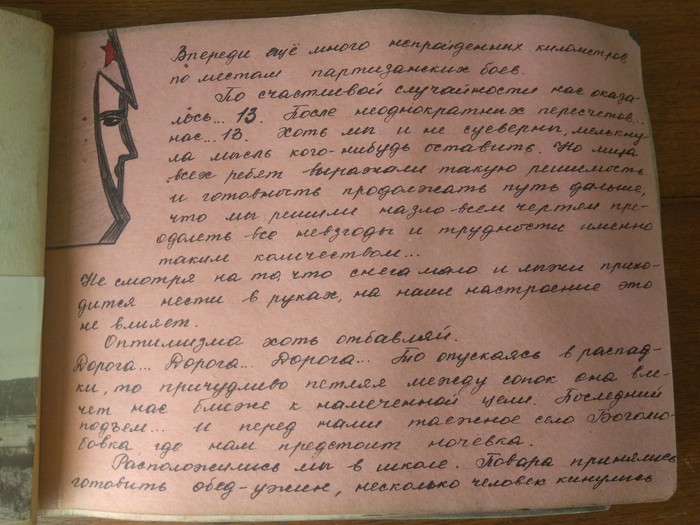 Впереди ещё много непройденных километров
по местам партизанских боев.
По счастливой случайности нас оказа-
лось... 13. После неоднократных пересчетов...
нас... 13. Хоть мы и не суеверны, мелькну-
ла мысль кого-нибудь оставить. Но лица
всех ребят выражали такую решимость
и готовность продолжать путь дальше,
что мы решили назло всем чертям пре-
одолеть все невзгоды и трудности именно
таким количеством...
Не смотря на то, что снега мало и лыжи прихо-
дится нести в руках, на наше настроение это
не влияет.
Оптимизма хоть отбавляй.
Дорога... Дорога... Дорога... То опускаясь в распад-
ки, то причудливо петляя между сопок она вле-
чет нас ближе к намеченной цели. Последний
подъем... и перед нами таежное село Богомо-
бовка где нам предстоит ночевка.
Расположились мы в школе. Повара принялись
готовить обед-ужин, несколько человек кинулись